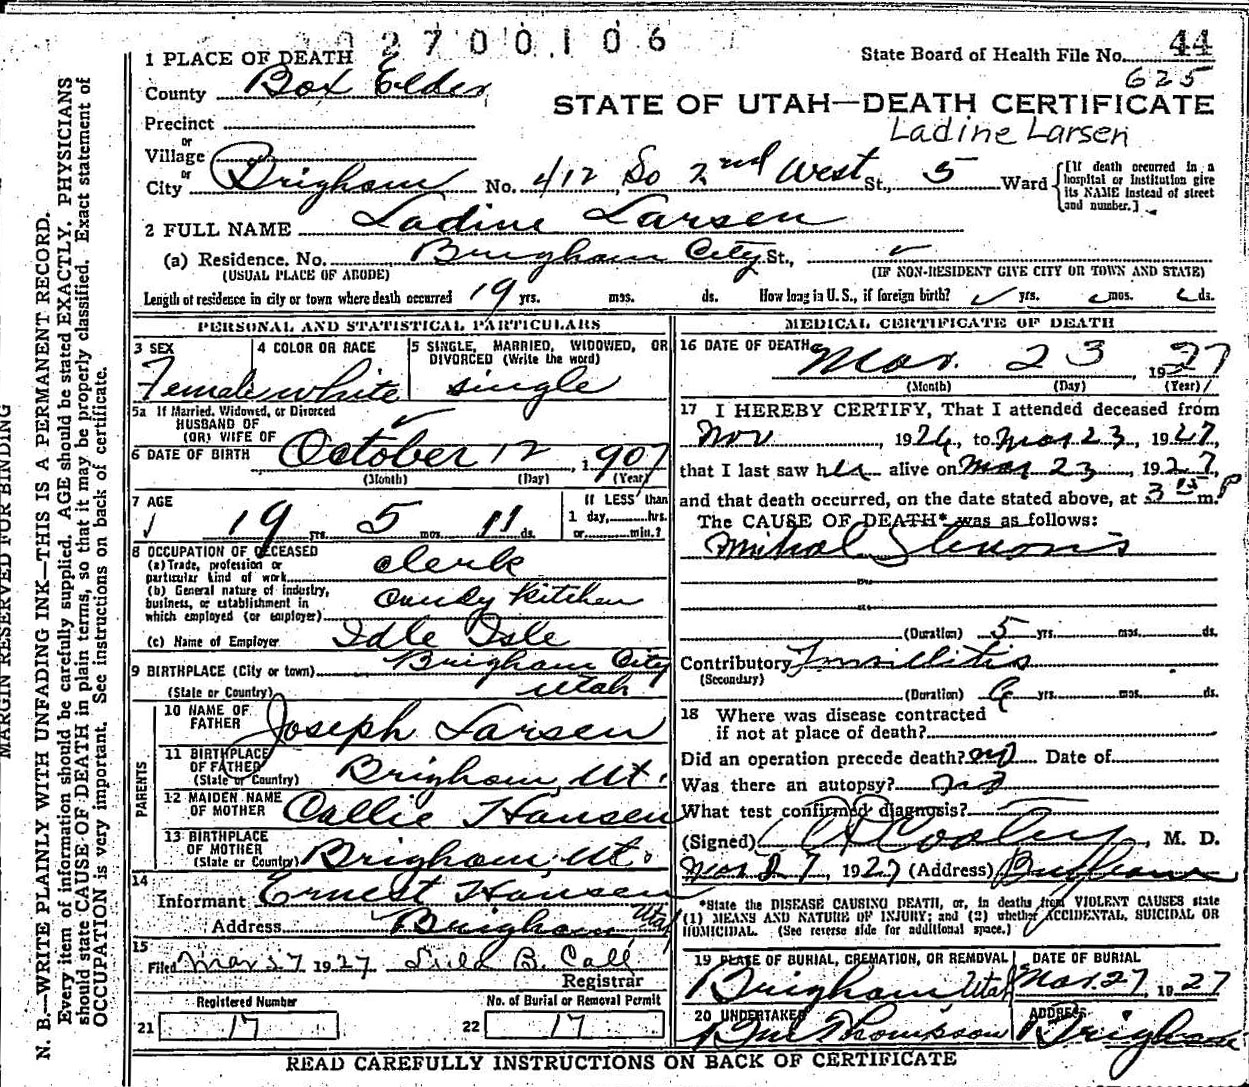 2700106
1 PLACE OF DEATH
State Board of Health File No. 44
625
County Box Elder
STATE OF UTAH—DEATH CERTIFICATE
Ladine Larsen
Precinct
or
Village
or
City Brigham No. 412 So 2nd West St., 5 Ward
[If death occurred in a hospital or institution give its NAME instead of street and number.]
2 FULL NAME Ladine Larsen
(a) Residence, No. Brigham City St.,
(USUAL PLACE OF ABODE) (IF NON-RESIDENT GIVE CITY OR TOWN AND STATE)
Length of residence in city or town where death occurred 19 yrs. mos. ds. How long in U. S., if foreign birth? yrs. mos. ds.
PERSONAL AND STATISTICAL PARTICULARS
3 SEX
Female
4 COLOR OR RACE
white
5 SINGLE, MARRIED, WIDOWED, OR DIVORCED (Write the word)
single
5a If Married, Widowed, or Divorced
HUSBAND OF
(OR) WIFE OF
6 DATE OF BIRTH October 12, 1907
(Month) (Day) (Year)
7 AGE
19 yrs. 5 mos. 11 ds.
If LESS than
1 day, hrs.
or min.?
8 OCCUPATION OF DECEASED
(a) Trade, profession or
particular kind of work clerk
(b) General nature of industry,
business, or establishment in
which employed (or employer) Candy Kitchen
(c) Name of Employer Idle Isle
9 BIRTHPLACE (City or town) Brigham City
(State or Country) Utah
PARENTS
10 NAME OF
FATHER Joseph Larsen
11 BIRTHPLACE
OF FATHER
(State or Country) Brigham, Ut.
12 MAIDEN NAME
OF MOTHER Callie Hansen
13 BIRTHPLACE
OF MOTHER
(State or Country) Brigham, Ut.
14
Informant Ernest Hansen
Address Brigham, Utah
15
Filed Mar 27 1927 B. Call
Registrar
Registered Number
21 17
No. of Burial or Removal Permit
22 17
MEDICAL CERTIFICATE OF DEATH
16 DATE OF DEATH
Mar. 23, 1927
(Month) (Day) (Year)
17 I HEREBY CERTIFY, That I attended deceased from
Nov, 1926, to Mar 23, 1927,
that I last saw her alive on Mar 23, 1927,
and that death occurred, on the date stated above, at 3 15 m. P
The CAUSE OF DEATH* was as follows:
Mitral Stenosis
(Duration) 5 yrs. mos. ds.
Contributory Tonsillitis
(Secondary)
(Duration) 6 yrs. mos. ds.
18 Where was disease contracted
if not at place of death?
Did an operation precede death? no Date of
Was there an autopsy? no
What test confirmed diagnosis?
(Signed) Cooley, M. D.
Mar 27, 1927 (Address) Brigham
*State the DISEASE CAUSING DEATH, or, in deaths from VIOLENT CAUSES state
(1) MEANS AND NATURE OF INJURY; and (2) whether ACCIDENTAL, SUICIDAL OR
HOMICIDAL. (See reverse side for additional space.)
19 PLACE OF BURIAL, CREMATION, OR REMOVAL
Brigham Utah
DATE OF BURIAL
Mar. 27, 1927
20 UNDERTAKER
Thompson
ADDRESS
Brigham
READ CAREFULLY INSTRUCTIONS ON BACK OF CERTIFICATE
MARGIN RESERVED FOR BINDING
N. B.—WRITE PLAINLY WITH UNFADING INK—THIS IS A PERMANENT RECORD.
Every item of information should be carefully supplied. AGE should be stated EXACTLY. PHYSICIANS
should state CAUSE OF DEATH in plain terms, so that it may be properly classified. Exact statement of
OCCUPATION is very important. See instructions on back of certificate.